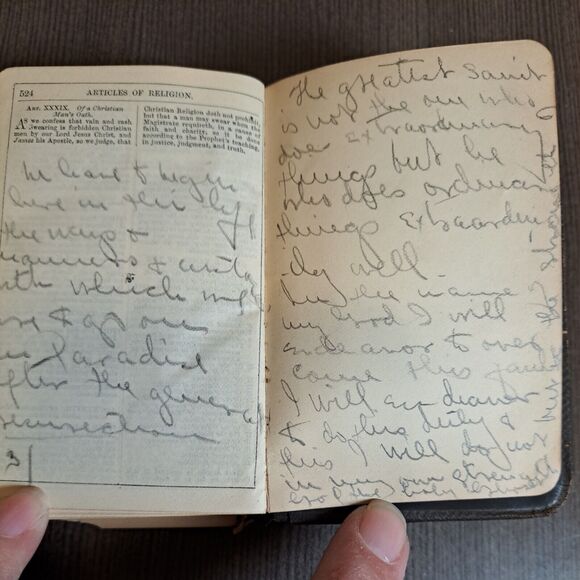 524 ARTICLES OF RELIGION.
ART. XXXIX. Of a Christian
Man's Oath.
AS we confess that vain and rash
Swearing is forbidden Christian
men by our Lord Jesus Christ, and
James his Apostle, so we judge, that
Christian Religion doth not prohibit,
but that a man may swear when the
Magistrate requireth, in a cause of
faith and charity, so it be done
according to the Prophet's teaching,
in justice, judgment, and truth.
We have to begin
here in this life
the ways &
&
with which we
& go on
in Paradise
after the general
resurrection
31
The greatest saint
is not the one who
does extraordinary
things but he
who does ordinary
things extraordina
rily well.
In the name of
my God I will
endeavor to over
come this
I will endeavor
to do this duty &
this I will do not
in my own strength but
the strength of
God the holy Ghost